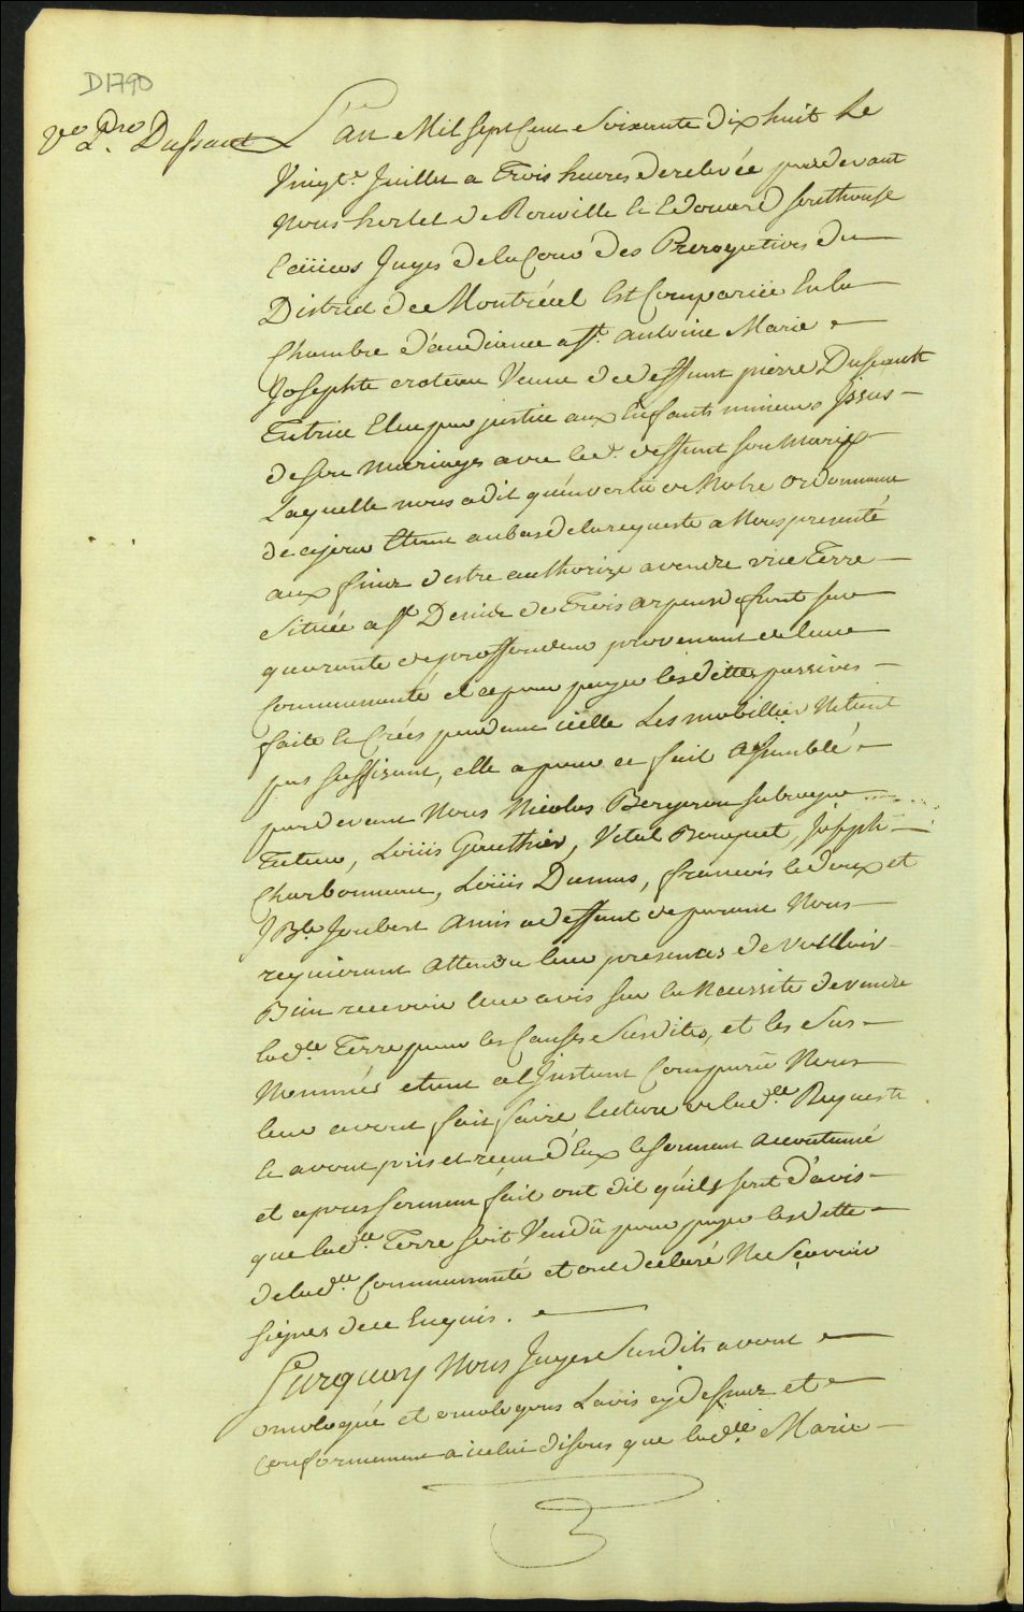 D1790
Vve Pre Dussault
L'an Mil Sept Cent Soixante Dix huit Le
Vingte. Juillet a Trois heures de relevée pardevant
Nous hertel De Rouville Et Edouard Southouse
Ecüiers Juges De la Cour Des Prerogatives Du
District De Montréeal Est Comparüe En la
Chambre d'audience asst. antoine Marie
Josephte croteau Veuve de deffunt pierre Dussault
Tutrice Elue par justice aux Enfants mineurs Issus
de son mariage avec led. deffunt son Marÿ
Laquelle nous a dit qu'en vertu de Notre ordonnance
de ce jour Etant au bas de la requeste a Nous presenté
aux fins d'estre authorizé a vendre une Terre
Située a st Denis De Trois arpens de front sur
quarante de proffondeur provenant de leur
Communauté et ce pour payer les dettes passives
faite Et Créés pendant icelle Les mobillier N'etant
pas suffisant, elle a pour ce fait assemblé
pardevant Nous Nicolas Bergeron subrogue
Tuteur, Loüis Gauthier, Vital Bouquet, Joseph
Charbonneau, Loüis Dumas, francois ledoux et
J Bte Joubert amis a deffaut de parant Nous
requierant attendu leur presences de Vouloir
Bien recevoir leur avis sur la Necessité de vendre
lade. Terre pour les Causes Susdites, et les Sus
Nommés etant a l'Instant Comparü Nous
leur avons fait faire lecture de lade. Requeste
Et avons pris et reçeu d'Eux le serment accoutumé
et apres serment fait ont dit qu'ils sont d'avis
que lade. Terre soit Vendü pour payer les dette
de lade. Communauté et ont declaré Ne Sçavoir
signer de ce Enquis.
Surquoy Nous Juges Susdits avons
omologué et omologons L'avis cy dessus et
conformement a icelui disons que lade. Marie